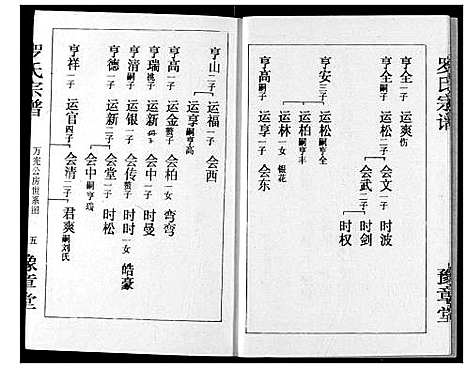 罗氏宗谱
豫章堂
亨全一子 运爽伤
亨全嗣子 运松二子 会文一子 时波
会武二子 时剑
时权
亨安三子 运松嗣亨全
运柏嗣亨丰
运林一女 银花
亨高嗣子 运享一子 会东
亨山二子 运福一子 会西
运享嗣亨高
亨高一子 运金赘子 会柏一女 弯弯
亨瑞祧子 运新 会中一子 时曼
亨清嗣子 运银一子 会传赘子 时时一女 皓豪
亨德一子 运新二子 会堂一子 时松
会中嗣亨瑞
亨祥一子 运官四子 会清二子 君爽嗣刘氏
罗氏宗谱
万宪公房世系图
五
豫章堂